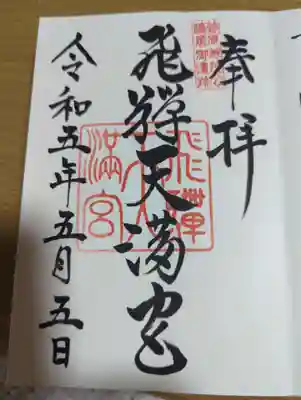 奉拝
飛騨天満宮
令和五年五月五日
飛騨天満宮